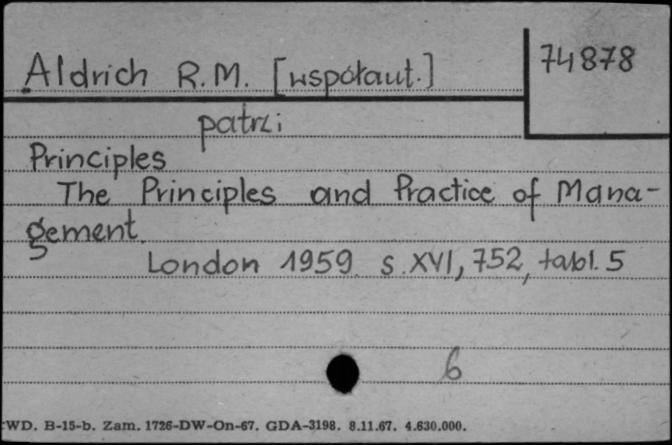 Aldrich R.M. [współaut.]
74878
patrz:
Principles
The Principles and Practice of Mana-
gement.
London 1959. s. XVI, 752, tabl. 5
6
WD. B-15-b. Zam. 1726-DW-On-67. GDA-3198. 8.11.67. 4.630.000.